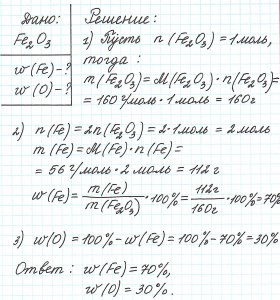 Дано:
Fe₂O₃
w(Fe)-?
w(O)-?
Решение:
1) Пусть n(Fe₂O₃)=1 моль,
тогда:
m(Fe₂O₃)=M(Fe₂O₃)·n(Fe₂O₃)=
=160 г/моль·1 моль=160г
2) n(Fe)=2n(Fe₂O₃)=2·1моль=2 моль
m(Fe)=M(Fe)·n(Fe)=
=56 г/моль·2 моль=112 г
w(Fe)=m(Fe)/m(Fe₂O₃)·100%=112г/160г·100%=70%
3) w(O)=100%-w(Fe)=100%-70%=30%
Ответ: w(Fe)=70%,
w(O)=30%.